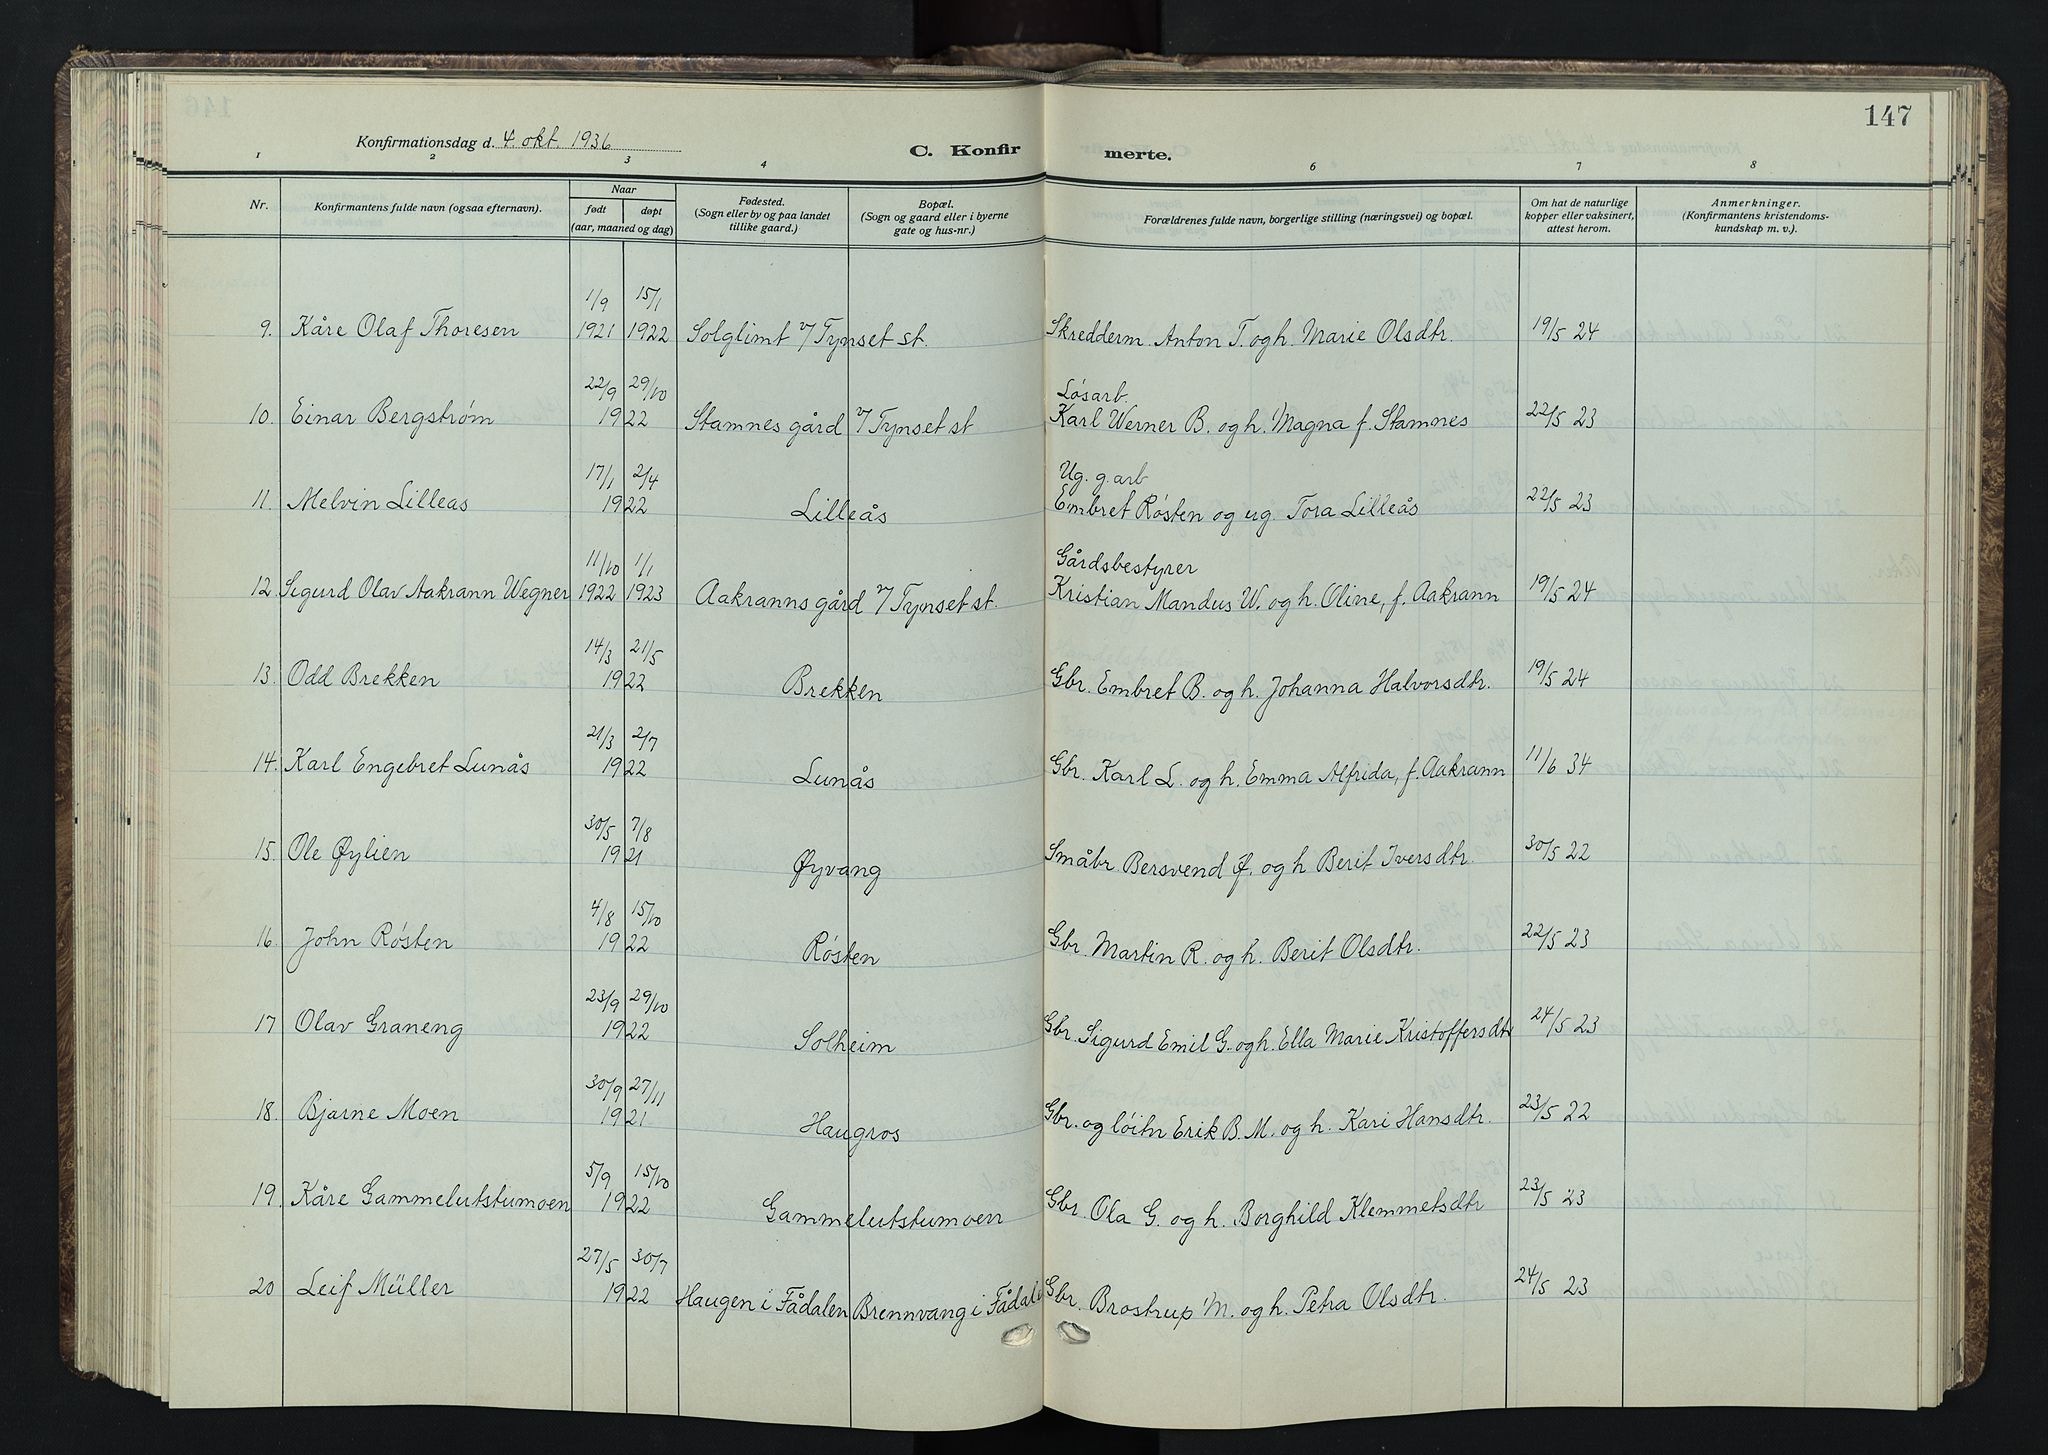 147
Konfirmationsdag d. 4. okt. 1936
C. Konfir merte.
1 2 3 4 6 7 8
Nr. Konfirmantens fulde navn (ogsaa efternavn). Naar født døpt (aar, maaned og dag) Fødested. (Sogn eller by og paa landet tillike gaard.) Bopæl. (Sogn og gaard eller i byerne gate og hus-nr.) Forældrenes fulde navn, borgerlige stilling (næringsvei) og bopæl. Om hat de naturlige kopper eller vaksinert, attest herom. Anmerkninger. (Konfirmantens kristendoms-kundskap m. v.).
1/9 15/1
9. Kåre Olaf Thoresen 1921 1922 Solglimt v/ Tynset st. Skredderm. Anton T. og h. Marie Olsdtr. 19/5 24
22/9 29/10 Løsarb.
10. Einar Bergstrøm 1922 Stamnes gård v/ Tynset st Karl Werner B. og h. Magna f. Stamnes 22/5 23
17/1 2/4 Ug. g. arb
11. Melvin Lilleas 1922 Lilleås Embret Røsten og ug. Tora Lilleås 22/5 23
11/10 1/1 Gårdsbestyrer
12 Sigurd Olav Aakrann Wegner 1922 1923 Aakranns gård v/ Tynset st. Kristian Mandus W. og h. Oline, f. Aakrann 19/5 24
14/3 21/5
13. Odd Brekken 1922 Brekken Gbr. Embret B. og h. Johanna Halvorsdtr. 19/5 24
21/3 2/7
14. Karl Engebret Lunås 1922 Lunås Gbr. Karl L. og h. Emma Alfrida, f. Aakrann 11/6 34
30/5 7/8
15. Ole Øylien 1921 Øyvang Småbr. Bersvend Ø. og h Berit Iversdtr. 30/5 22
4/8 15/10
16. John Røsten 1922 Røsten Gbr. Martin R. og h. Berit Olsdtr. 22/5 23
23/9 29/10
17 Olav Graneng 1922 Solheim Gbr. Sigurd Emil G. og h. Ella Marie Kristoffersdtr 24/5 23
30/9 27/11
18. Bjarne Moen 1921 Haugros Gbr. og løitn Erik B. M. og h. Kari Hansdtr. 23/5 22
5/9 15/10
19. Kåre Gammelutstumoen 1922 Gammelutstumoen Gbr. Ola G. og h. Borghild Klemmetsdtr 23/5 23
27/5 30/7
20 Leif Müller 1922 Haugen i Fådalen Brennvang i Fådal Gbr. Brostrup M. og h. Petra Olsdtr. 24/5 23